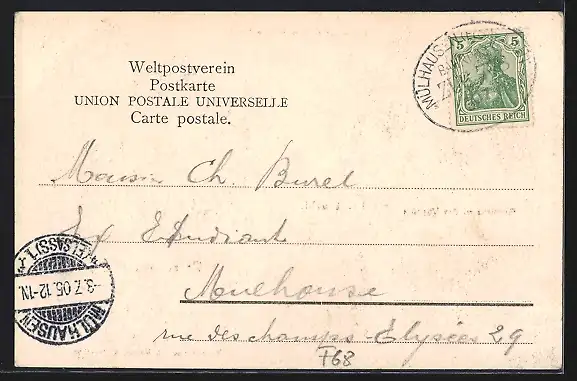 Weltpostverein
Postkarte
UNION POSTALE UNIVERSELLE
Carte postale.
MÜLHAUSEN
5 5
DEUTSCHES REICH
Ch. Burel
Etudiant
Mulhouse
rue des champs-Elysées 29
MÜLHAUSEN
(ELSASS) 1.
-3.7.05.12-1N.
F68